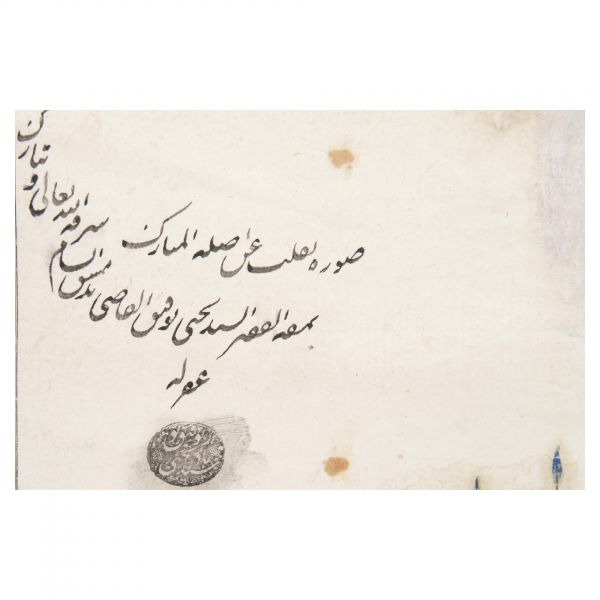 صورة نقلت عن اصله المبارك
نمقه الفقير السيد يحيى توفيق القاضي
بدمشق الشام
شرفه الله تعالى و تبارك
غفر له